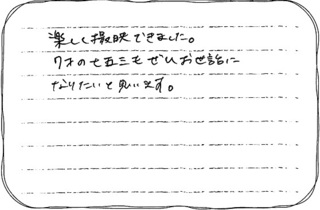 楽しく撮影できました。
7才の七五三もぜひお世話に
なりたいと思います。